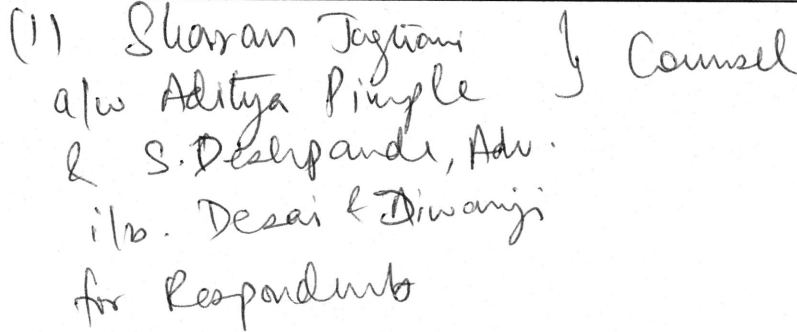 (1) Sharan Jagtiani } Counsel
a/w Aditya Pimple
& S. Deshpande, Adv.
i/b. Desai & Diwanji
for Respondents